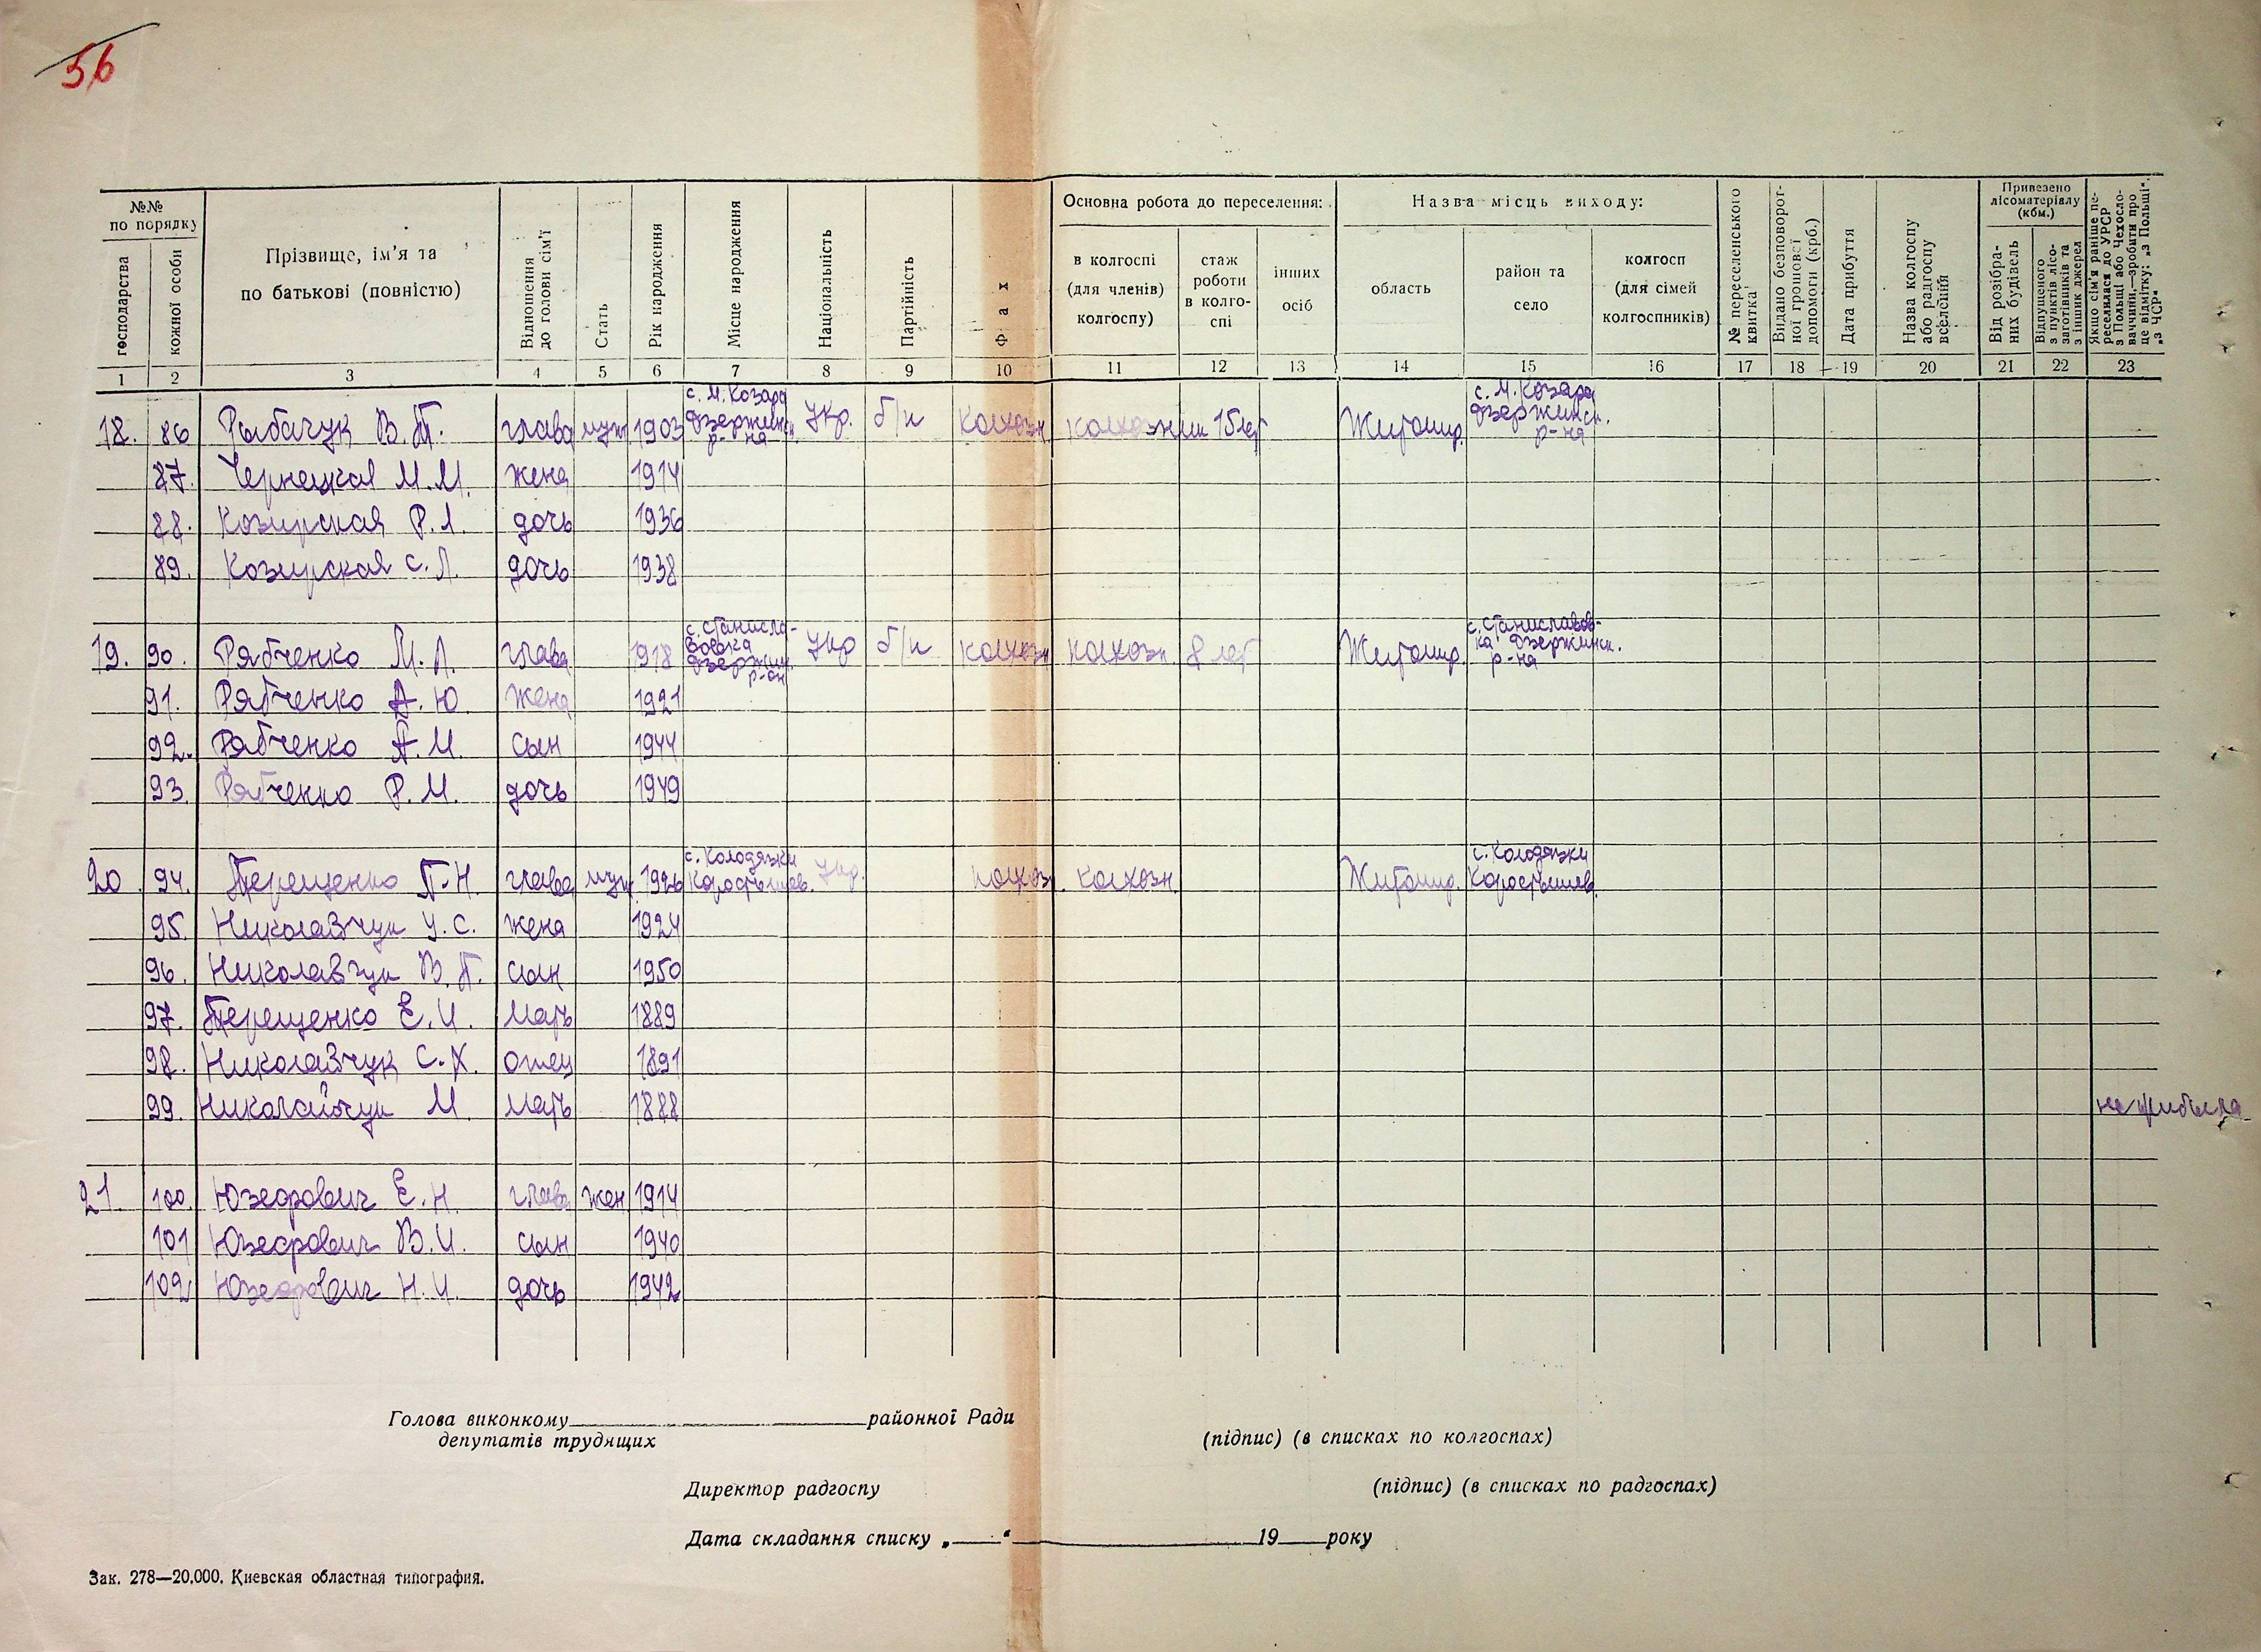 56
№№ по порядку
господарства
кожної особи
Прізвище, ім'я та по батькові (повністю)
Відношення до голови сім'ї
Стать
Рік народження
Місце народження
Національність
Партійність
Фах
Основна робота до переселення:
в колгоспі (для членів) колгоспу)
стаж роботи в колгоспі
інших осіб
Назва місць виходу:
область
район та село
колгосп (для сімей колгоспників)
№ переселенського квитка
Видано безповоротної грошової допомоги (крб.)
Дата прибуття
Назва колгоспу або радгоспу вселення
Привезено лісоматеріалу (кбм.)
Від розібраних будівель
Відпущеного з пунктів лісозаготівників та з інших джерел
Якщо сім'я раніше переселилася до УРСР з Польщі або Чехословаччини,—зробити про це відмітку: „з Польщі“, „з ЧСР“
1 2 3 4 5 6 7 8 9 10 11 12 13 14 15 16 17 18 19 20 21 22 23
18. 86 Рыбачук В.Т. глава муж 1903 с. М. Козара Дзержинск. р-на Укр. б/п колхозн. колхозник 15 лет Житомир. с. М. Козара Дзержинск. р-на
87. Чернецкая М.М. жена 1914
88. Козирская Р.Л. дочь 1936
89. Козирская С.Л. дочь 1938
19. 90. Рябченко М.Л. глава 1918 с. Станиславовка Дзержин. р-он Укр б/п колхозн колхозн. 8 лет Житомир. с. Станиславовка Дзержинск. р-на
91. Рябченко А.Ю. жена 1921
92. Рябченко А.М. сын 1944
93. Рябченко Р.М. дочь 1949
20. 94. Терещенко П.Н. глава муж. 1926 с. Колодязки Коростышев. Укр. колхоз. колхозн. Житомир. с. Колодязки Коростышев.
95. Николавчук У.С. жена 1924
96. Николавчук В.П. сын 1950
97. Терещенко Е.И. мать 1889
98. Николавчук С.Х. отец 1891
99. Николайчук М. мать 1888 не прибыла
21. 100. Юзефович Е.Н. глава жен 1914
101 Юзефович В.И. сын 1940
102 Юзефович Н.И. дочь 1942
Голова виконкому районної Ради
депутатів трудящих
(підпис) (в списках по колгоспах)
Директор радгоспу (підпис) (в списках по радгоспах)
Дата складання списку „ “ 19 року
Зак. 278—20.000. Киевская областная типография.